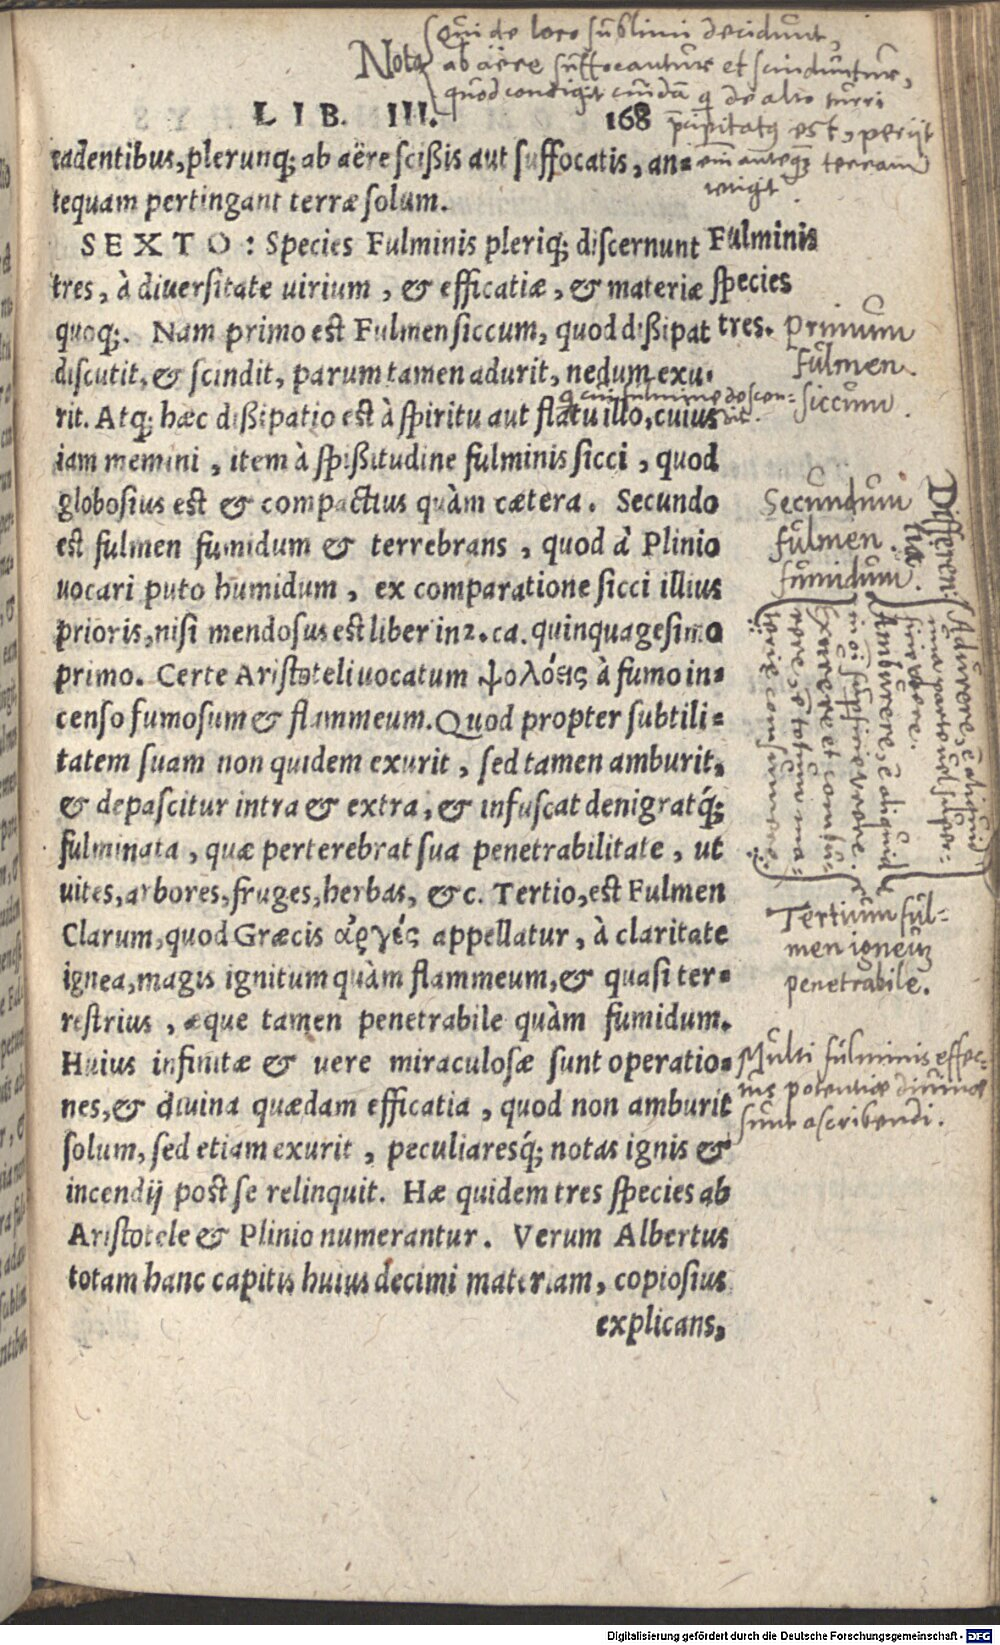 Nota
Qui de loco sublimi decidunt,
ab aëre suffocantur et scinduntur,
quod contigit cuidā q de alto turri
p̄cipitatq est, perijt
em̄ anteq terram
tetigit
LIB. III. 168
cadentibus, plerunq; ab aëre scißis aut suffocatis, an-
tequam pertingant terræ solum.
SEXTO: Species Fulminis pleriq; discernunt
tres, à diuersitate uirium, & efficatiæ, & materiæ
quoq;. Nam primo est Fulmen siccum, quod dißipat
discutit, & scindit, parum tamen adurit, nedum exu-
rit. Atq; hæc dißipatio est à spiritu aut flatu illo, cuius
iam memini, item à spißitudine fulminis sicci, quod
globosius est & compactius quàm cætera. Secundo
est fulmen fumidum & terrebrans, quod à Plinio
uocari puto humidum, ex comparatione sicci illius
prioris, nisi mendosus est liber in 2. ca. quinquagesimo
primo. Certe Aristoteli uocatum ψολόεις à fumo in-
censo fumosum & flammeum. Quod propter subtili-
tatem suam non quidem exurit, sed tamen amburit,
& depascitur intra & extra, & infuscat denigratq́;
fulminata, quæ perterebrat sua penetrabilitate, ut
uites, arbores, fruges, herbas, &c. Tertio, est Fulmen
Clarum, quod Græcis ἀργές appellatur, à claritate
ignea, magis ignitum quàm flammeum, & quasi ter-
restrius, æque tamen penetrabile quàm fumidum.
Huius infinitæ & uere miraculosæ sunt operatio-
nes, & diuina quædam efficatia, quod non amburit
solum, sed etiam exurit, peculiaresq́; notas ignis &
incendij post se relinquit. Hæ quidem tres species ab
Aristotele & Plinio numerantur. Verum Albertus
totam hanc capitis huius decimi materiam, copiosius
explicans,
Fulminis
species
tres.
Primum
fulmen
siccum.
Secundum
fulmen
fumidum.
Differen
tia
Adurere, ē alicui
Amburere, ē aliquid
Exurere et combu-
rere, ē totum ma-
Tertium ful-
men igneum
penetrabile.
Multi fulminis effec-
tus potentiæ diuinæ
sunt ascribendi.
Digitalisierung gefördert durch die Deutsche Forschungsgemeinschaft - DFG